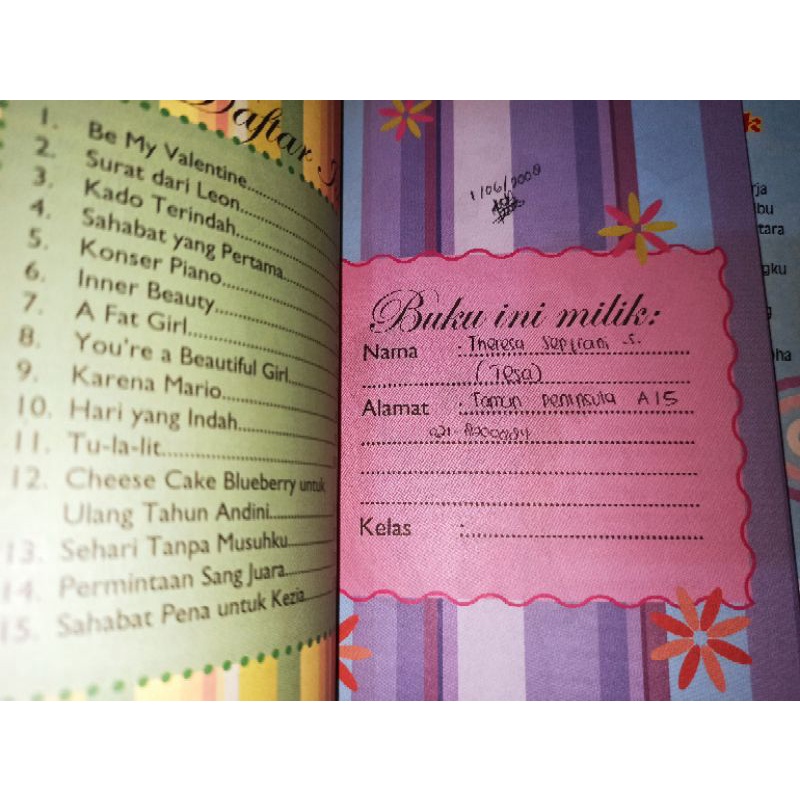 Daftar
1. Be My Valentine
2. Surat dari Leon
3. Kado Terindah
4. Sahabat yang Pertama
5. Konser Piano
6. Inner Beauty
7. A Fat Girl
8. You're a Beautiful Girl
9. Karena Mario
10. Hari yang Indah
11. Tu-la-lit
12. Cheese Cake Blueberry untuk
Ulang Tahun Andini
13. Sehari Tanpa Musuhku
14. Permintaan Sang Juara
15. Sahabat Pena untuk Kezia
1/06/2008
Buku ini milik:
Nama : Theresa Septiani S.
(Tesa)
Alamat : Taman peninsula A15
021-
Kelas :